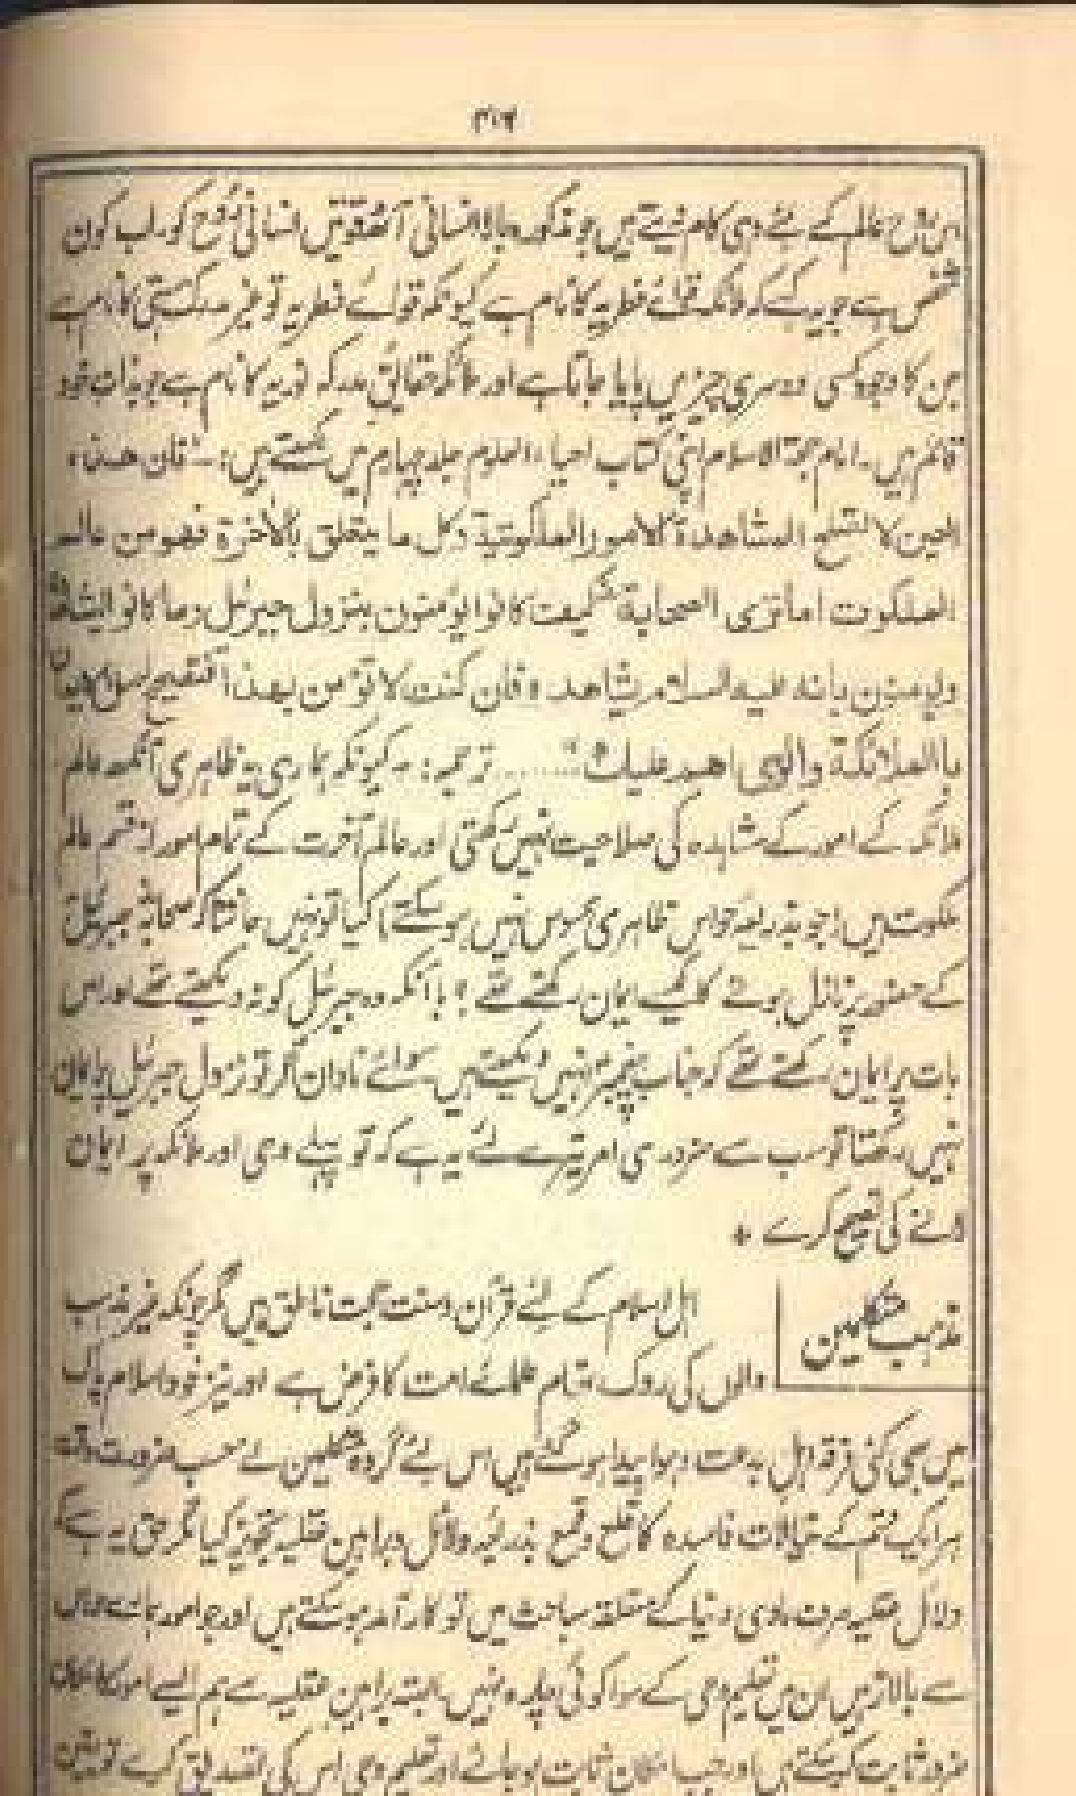 ۳۱۶
اس روح عالم کے لئے وہی کام دیتے ہیں جو مذکورہ بالا انسانی آٹھ قوتیں انسانی روح کو۔ اب کون
شخص ہے جو یہ کہے کہ ملائکہ قوائے فطریہ کا نام ہے کیونکہ قوائے فطریہ تو غیر مدرکہ کا نام ہے
جن کا وجود کسی دوسری چیز میں پایا جاتا ہے اور ملائکہ حقائق مدرکہ نوریہ کا نام ہے جو بذات خود
قائم ہیں۔ امام حجۃ الاسلام اپنی کتاب احیاء العلوم جلد چہارم میں لکھتے ہیں:۔ فان ھذہ
العین لا تصلح المشاھدۃ الامور الملکوتیۃ وکل ما یتعلق بالأخرۃ فھو من عالم
الملکوت اما تری الصحابۃ کیف کانوا یؤمنون بنزول جبرئیل وما کانوا یشاھدونہ
ویومنون بانہ علیہ السلام یشاھدہ فان کنت لا تؤمن بھذا فتصحیح اصل الایمان
بالملائکۃ والوحی اھم علیک ....... ترجمہ: ۔ کیونکہ ہماری یہ ظاہری آنکھ عالم
ملائکہ کے امور کے مشاہدہ کی صلاحیت نہیں رکھتی اور عالم آخرت کے تمام امور از قسم عالم
ملکوت ہیں (جو بذریعہ حواس ظاہری محسوس نہیں ہو سکتے) کیا تو نہیں جانتا کہ صحابہؓ جبرئیل
کے حضور پر نازل ہونے کا کیسے ایمان رکھتے تھے ؟ باآنکہ وہ جبرئیل کو نہ دیکھتے تھے اور اس
بات پر ایمان رکھتے تھے کہ جناب پیغمبر انہیں دیکھتے ہیں اے نادان اگر تو نزول جبرئیل پر ایمان
نہیں رکھتا تو سب سے ضروری امر تیرے لئے یہ ہے کہ تو پہلے وحی اور ملائکہ پر ایمان
لانے کی تصحیح کرے *
مذہب متکلمین
اہل اسلام کے لئے قرآن و سنت حجت ناطق ہیں مگر چونکہ غیر مذہب
والوں کی روک تھام علمائے امت کا فرض ہے اور نیز خود اسلام پاک
میں بھی کئی فرقہ اہل بدعت و ہوا پیدا ہو گئے ہیں اس لئے گروہ متکلمین نے حسب ضرورت وقت
ہر ایک قسم کے خیالات فاسدہ کا قلع و قمع بذریعہ دلائل و براہین عقلیہ تجویز کیا مگر حق یہ ہے کہ
دلائل عقلیہ صرف مادی دنیا کے متعلقہ مباحث میں تو کارآمد ہو سکتے ہیں اور جو امور ہمارے حواس
سے بالاتر ہیں ان میں تعلیم وحی کے سوا کوئی چارہ نہیں البتہ براہین عقلیہ سے ہم ایسے امور کا امکان
ضرور ثابت کر سکتے ہیں اور جب امکان ثابت ہو جائے اور تعلیم وحی اس کی تصدیق کرے تو یقین